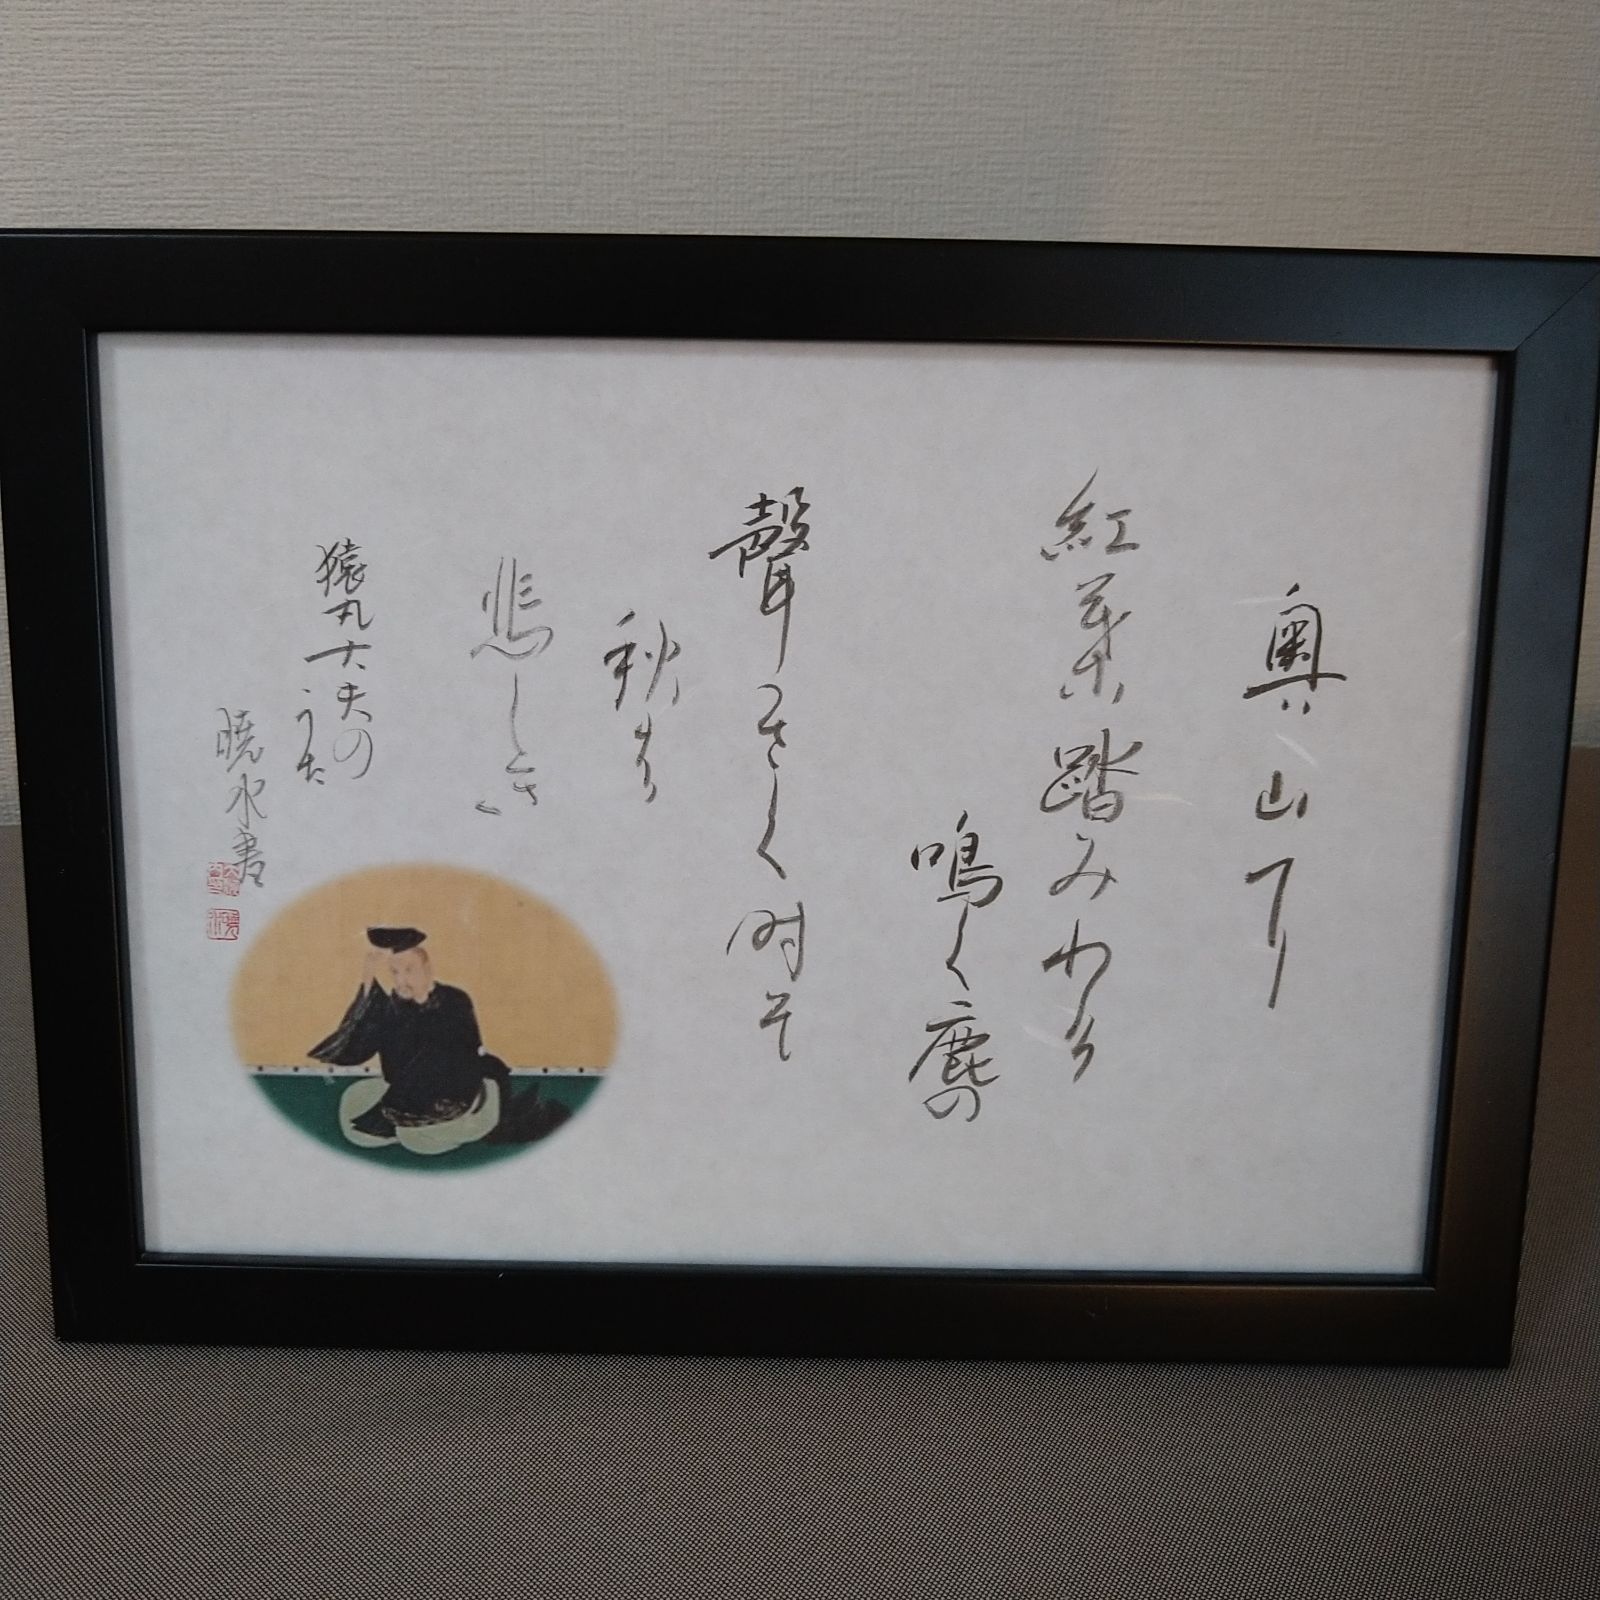 奥山に
紅葉踏みわけ
鳴く鹿の
聲きく時そ
秋は
悲しき
猿丸大夫の
うた
暁水書